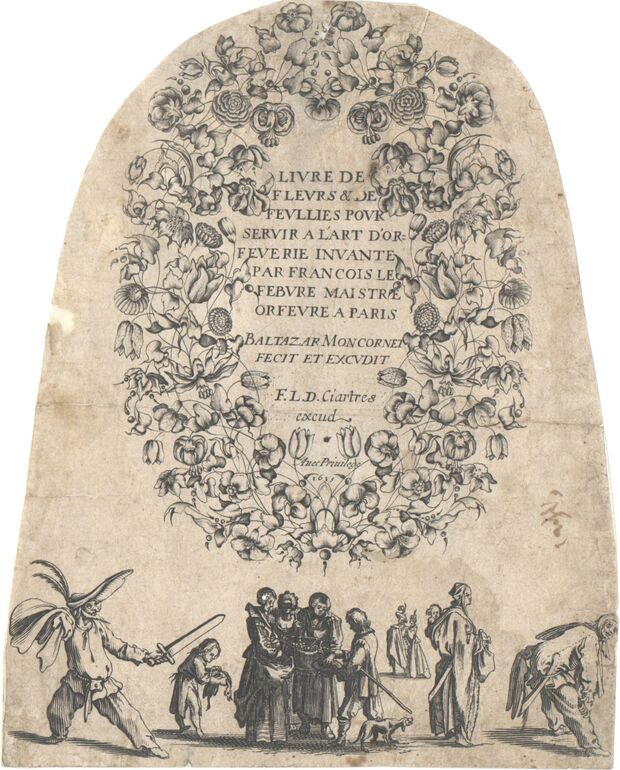 LIURE DE
FLEVRS & DE
FEVLLIES POVR
SERVIR A L'ART D'OR=
FEVERIE INVANTE
PAR FRANCOIS LE
FEBVRE MAISTRE
ORFEVRE A PARIS
BALTAZAR MONCORNET
FECIT ET EXCVDIT
F. L. D. Ciartres
excud
Auec Priuilege